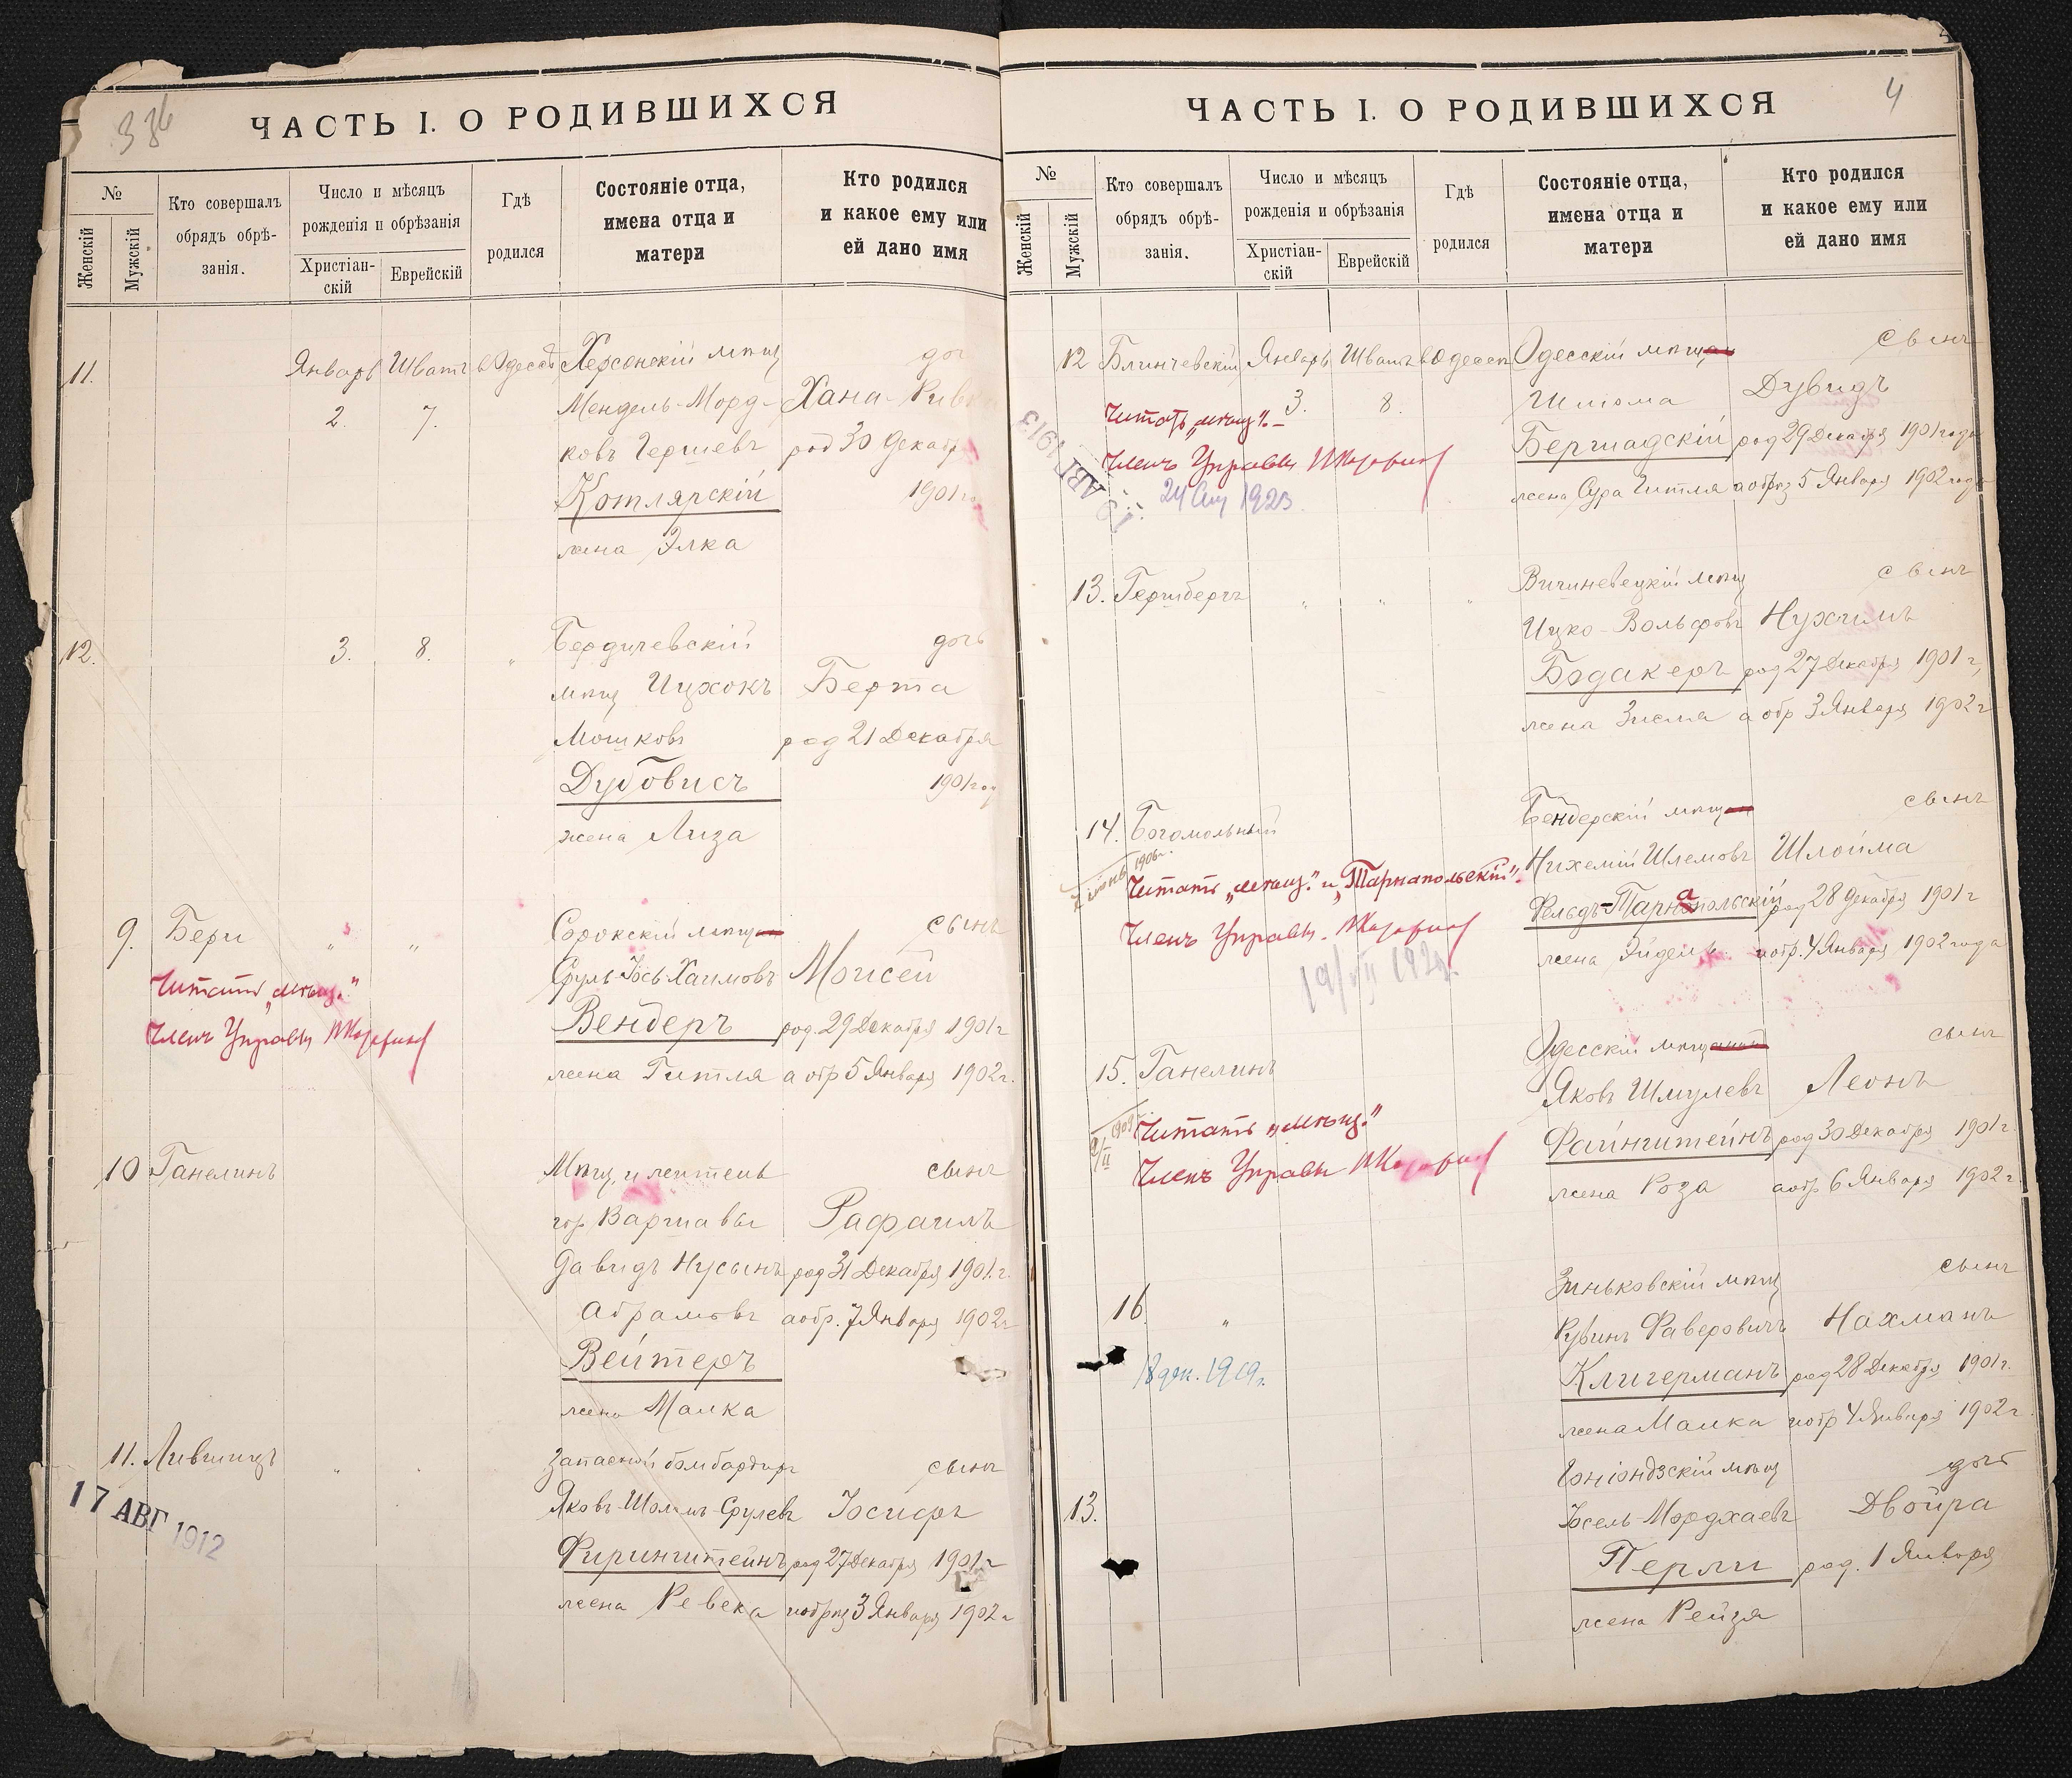 ЧАСТЬ I. О РОДИВШИХСЯ
№
Женскій
Мужскій
Кто совершалъ
обрядъ обрѣ-
занія.
Число и мѣсяцъ
рожденія и обрѣзанія
Христіан-
скій
Еврейскій
Гдѣ
родился
Состояніе отца,
имена отца и
матери
Кто родился
и какое ему или
ей дано имя
11. Январь Шватъ Одессѣ Херсонскій мѣщ
2. 7. Мендель-Морд- Хана-
ковъ Гершевъ род 30 Декабр
Котлярскій 1901
жена Элка
12. 3. 8. " Бердичевскій дочь
мѣщ Ицхокъ Берта
Мошковъ род 21 Декабря
Дубовисъ 1901 год
жена Лиза
9. Бери " " Сорокскій мѣщ сынъ
Читать „мѣщ." Сруль-Іось Хаимовъ Моисей
Членъ Управы Вендеръ род. 29 Декабря 1901 г
жена Гитля а обр 5 Января 1902 г.
10 Ганелинъ Мѣщ. и сынъ
гор Варшавы Рафаилъ
Давидъ Нусынъ род 31 Декабря 1901 г.
Абрамовъ а обр. 7 Января 1902 г
Вейтеръ
жена Малка
11. Лившицъ " Запасной бомбардиръ сынъ
17 АВГ 1912 Яковъ- Срулевъ Іосифъ
Фиринштейнъ род 27 Декабря 1901 г
жена Ревека и обрѣз 3 Января 1902 г
ЧАСТЬ I. О РОДИВШИХСЯ
4
№
Женскій
Мужскій
Кто совершалъ
обрядъ обрѣ-
занія.
Число и мѣсяцъ
рожденія и обрѣзанія
Христіан-
скій
Еврейскій
Гдѣ
родился
Состояніе отца,
имена отца и
матери
Кто родился
и какое ему или
ей дано имя
12 Блинчевскій Январь Шватъ в Одессѣ Одесскій мѣщ сынъ
3. 8. Шлома Дувидъ
Читать „мѣщ." Бершадскій род 29 Декабря 1901 года
Членъ Управы жена Сура Гитля а обрѣз 5 Января 1902 года
АВГ 1913
13. Гершбергъ " " " мѣщ сынъ
Ицко-Вольфовъ Нухимъ
Бодакеръ род 27 Декабря 1901 г,
жена Зисля а обр 3 Января 1902 г
14. Богомольный Бендерскій мѣщ сынъ
1906 г. Нихемій Шлемовъ Шлойма
Читать „мѣщ." и „Тарнапольскій".
Фельдъ-Тарнапольскій род 28 Декабря 1901 г
Членъ Управы. жена а обр. 4 Января 1902 года
15. Ганелинъ Одесскій мѣщ сынъ
Яковъ Шмулевъ Леонъ
Читать „мѣщ." Файнштейнъ род 30 Декабря 1901 г
Членъ Управы жена Роза а обр 6 Января 1902 г
16. " Зиньковскій мѣщ сынъ
Рувинъ Фаверовичъ Нахманъ
18 дек. 1919 г. Клигерманъ род 28 Декабря 1901 г.
жена Малка и обр 4 Января 1902 г.
13. Гоніондзскій мѣщ дочь
Іосель-Мордхаевъ Двойра
Перли род. 1 Января
жена Рейзя